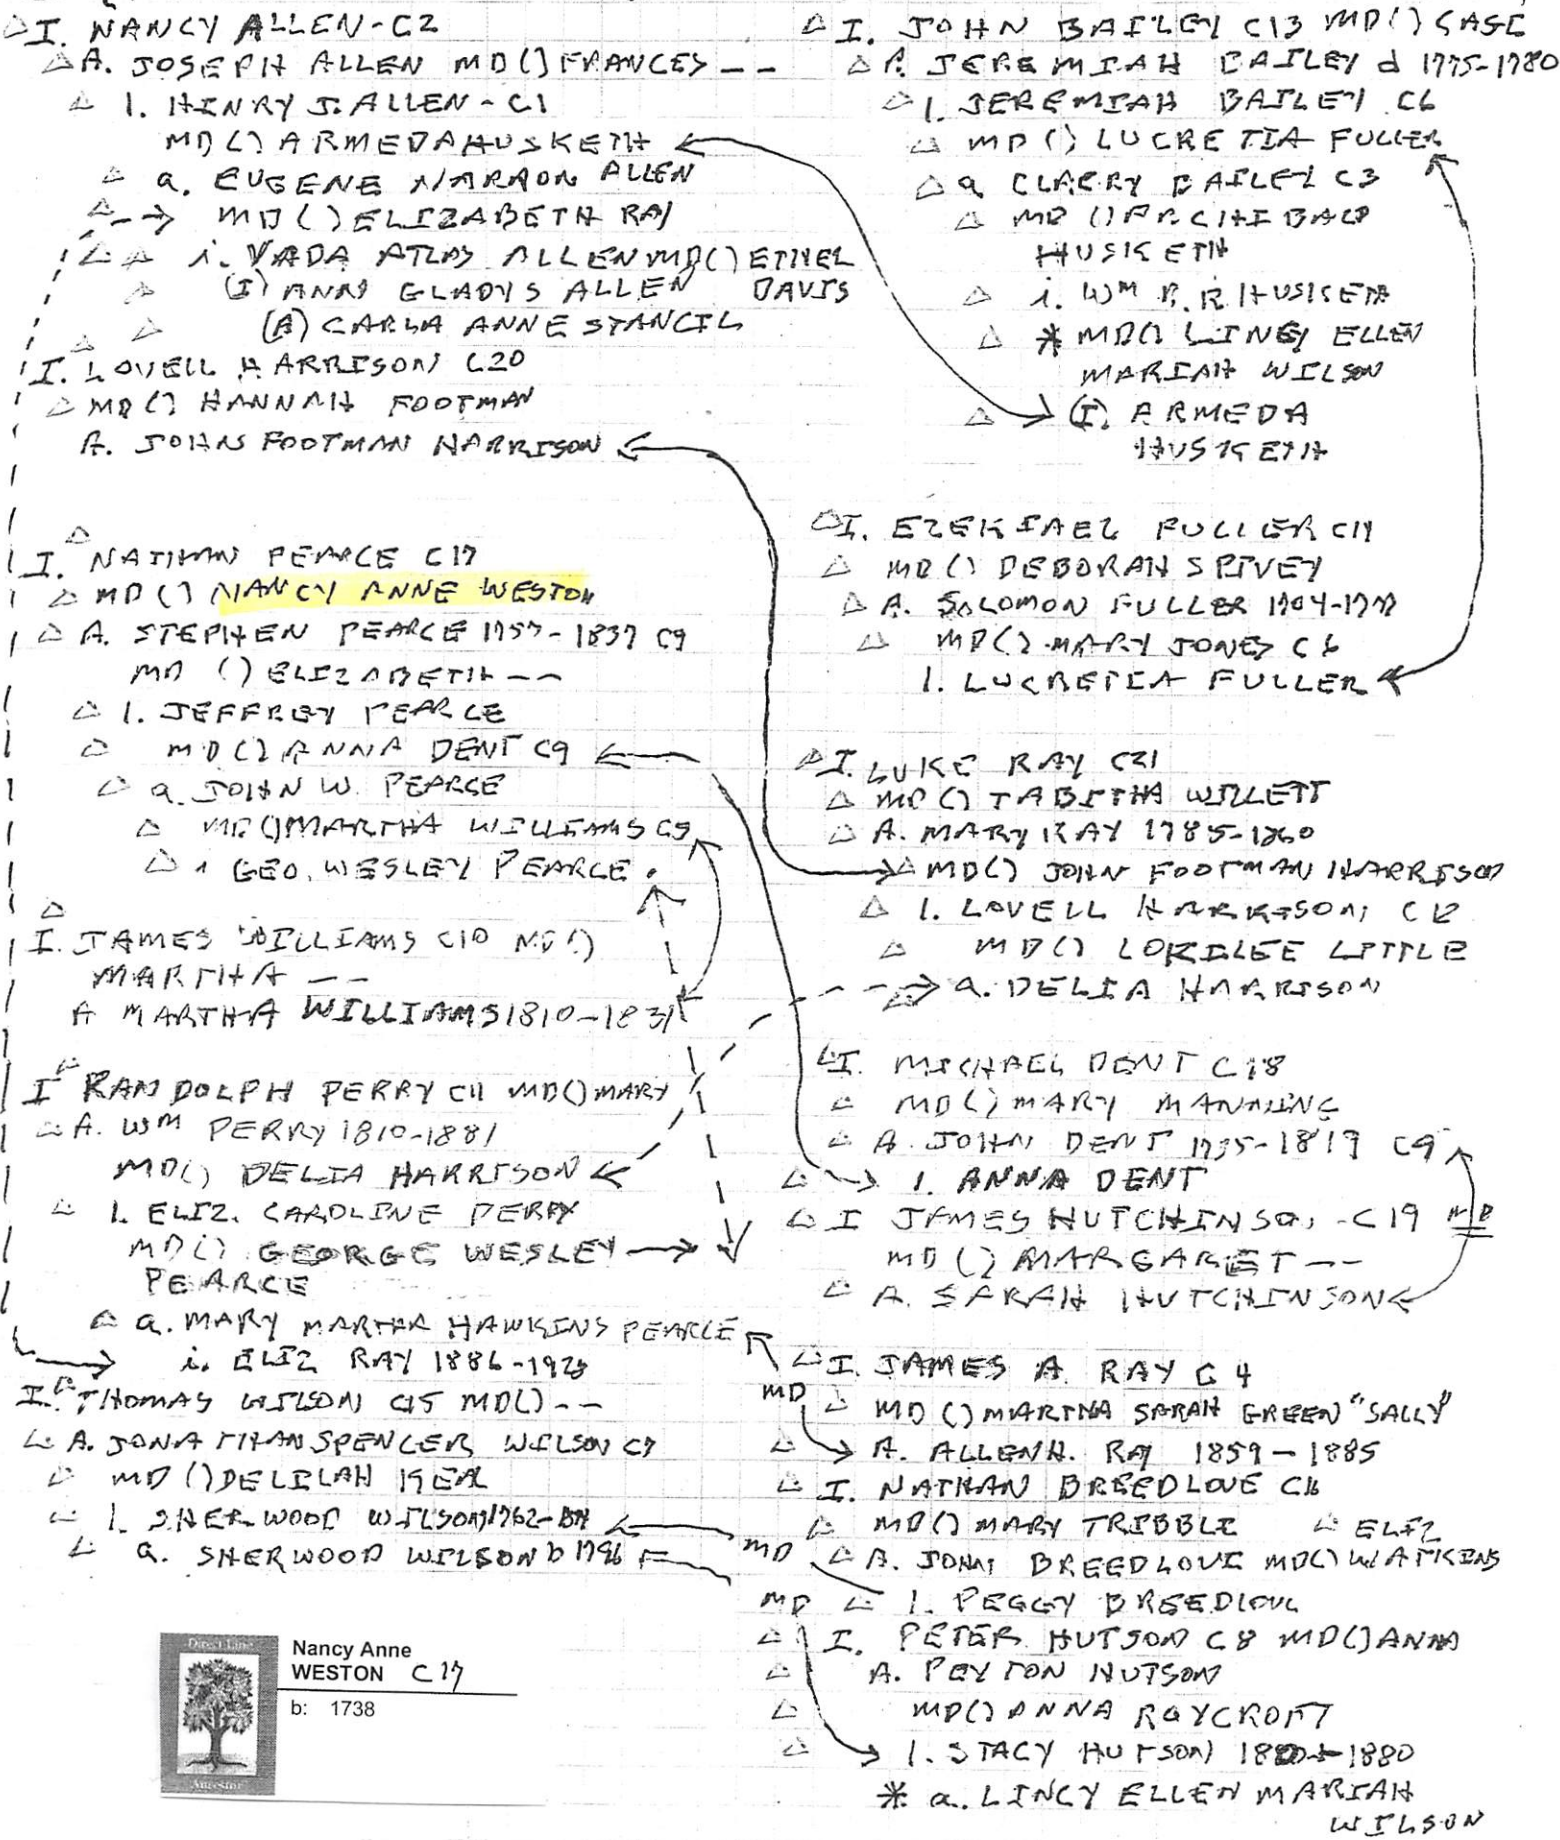 I. NANCY ALLEN-C2
A. JOSEPH ALLEN MD() FRANCES --
1. HENRY J. ALLEN-C1
MD() ARMEDA HUSKETH
a. EUGENE ALLEN
MD() ELIZABETH RAY
i. VADA ATLAS ALLEN MD() ETHEL DAVIS
(I) ANN GLADYS ALLEN
(A) CARLA ANNE STANCIL
I. LOVELL HARRISON C20
MD() HANNAH FOOTMAN
A. JOHN FOOTMAN HARRISON
I. NATHAN PEARCE C17
MD() NANCY ANNE WESTON
A. STEPHEN PEARCE 1757-1837 C9
MD () ELIZABETH --
1. JEFFREY PEARCE
MD() ANNA DENT C9
a. JOHN W. PEARCE
MD() MARTHA WILLIAMS C5
GEO. WESLEY PEARCE
I. JAMES WILLIAMS C10 MD()
MARTHA --
A MARTHA WILLIAMS 1810-1831
I RANDOLPH PERRY C11 MD() MARY
A. WM PERRY 1810-1881
MD() DELIA HARRISON
1. ELIZ. CAROLINE PERRY
MD() GEORGE WESLEY
PEARCE
a. MARY MARTHA HAWKINS PEARCE
i. ELIZ RAY 1886-1928
I. THOMAS WILSON C15 MD() --
A. JONATHAN SPENCER WILSON C7
MD () DELILAH
1. SHERWOOD WILSON 1762-
a. SHERWOOD WILSON b 1796
Direct Line
Ancestor
Nancy Anne
WESTON C17
b: 1738
I. JOHN BAILEY C13 MD() CASE
A. JEREMIAH BAILEY d 1775-1780
1. JEREMIAH BAILEY C6
MD () LUCRETIA FULLER
a CLARRY BAILEY C3
MD () ARCHIBALD
HUSKETH
i. WM R. R. HUSKETH
* MD() LINCY ELLEN
MARIAH WILSON
(I). ARMEDA
HUSKETH
I. EZEKIAEL FULLER C14
MD () DEBORAH SPIVEY
A. SOLOMON FULLER
MD() MARY JONES C6
1. LUCRETIA FULLER
I. LUKE RAY C21
MD () TABITHA WILLETT
A. MARY RAY 1785-1860
MD() JOHN FOOTMAN HARRISON
1. LOVELL HARRISON, C12
MD() LORILEE LITTLE
a. DELIA HARRISON
I. MICHAEL DENT C18
MD() MARY MANNING
A. JOHN DENT C9
1. ANNA DENT
I JAMES HUTCHINSON -C19 MD
MD () MARGARET --
A. SARAH HUTCHINSON
I. JAMES A. RAY C4
MD
MD () MARTHA SARAH GREEN "SALLY"
A. ALLEN H. RAY 1859-1885
I. NATHAN BREEDLOVE C16
MD() MARY TRIBBLE
ELIZ
MD
A. JOHN BREEDLOVE MD() WATKINS
MD
1. PEGGY BREEDLOVE
I. PETER HUTSON C8 MD() ANNA
A. PEYTON HUTSON
MD() ANNA ROYCROFT
1. STACY HUTSON 1880
* a. LINCY ELLEN MARIAH
WILSON